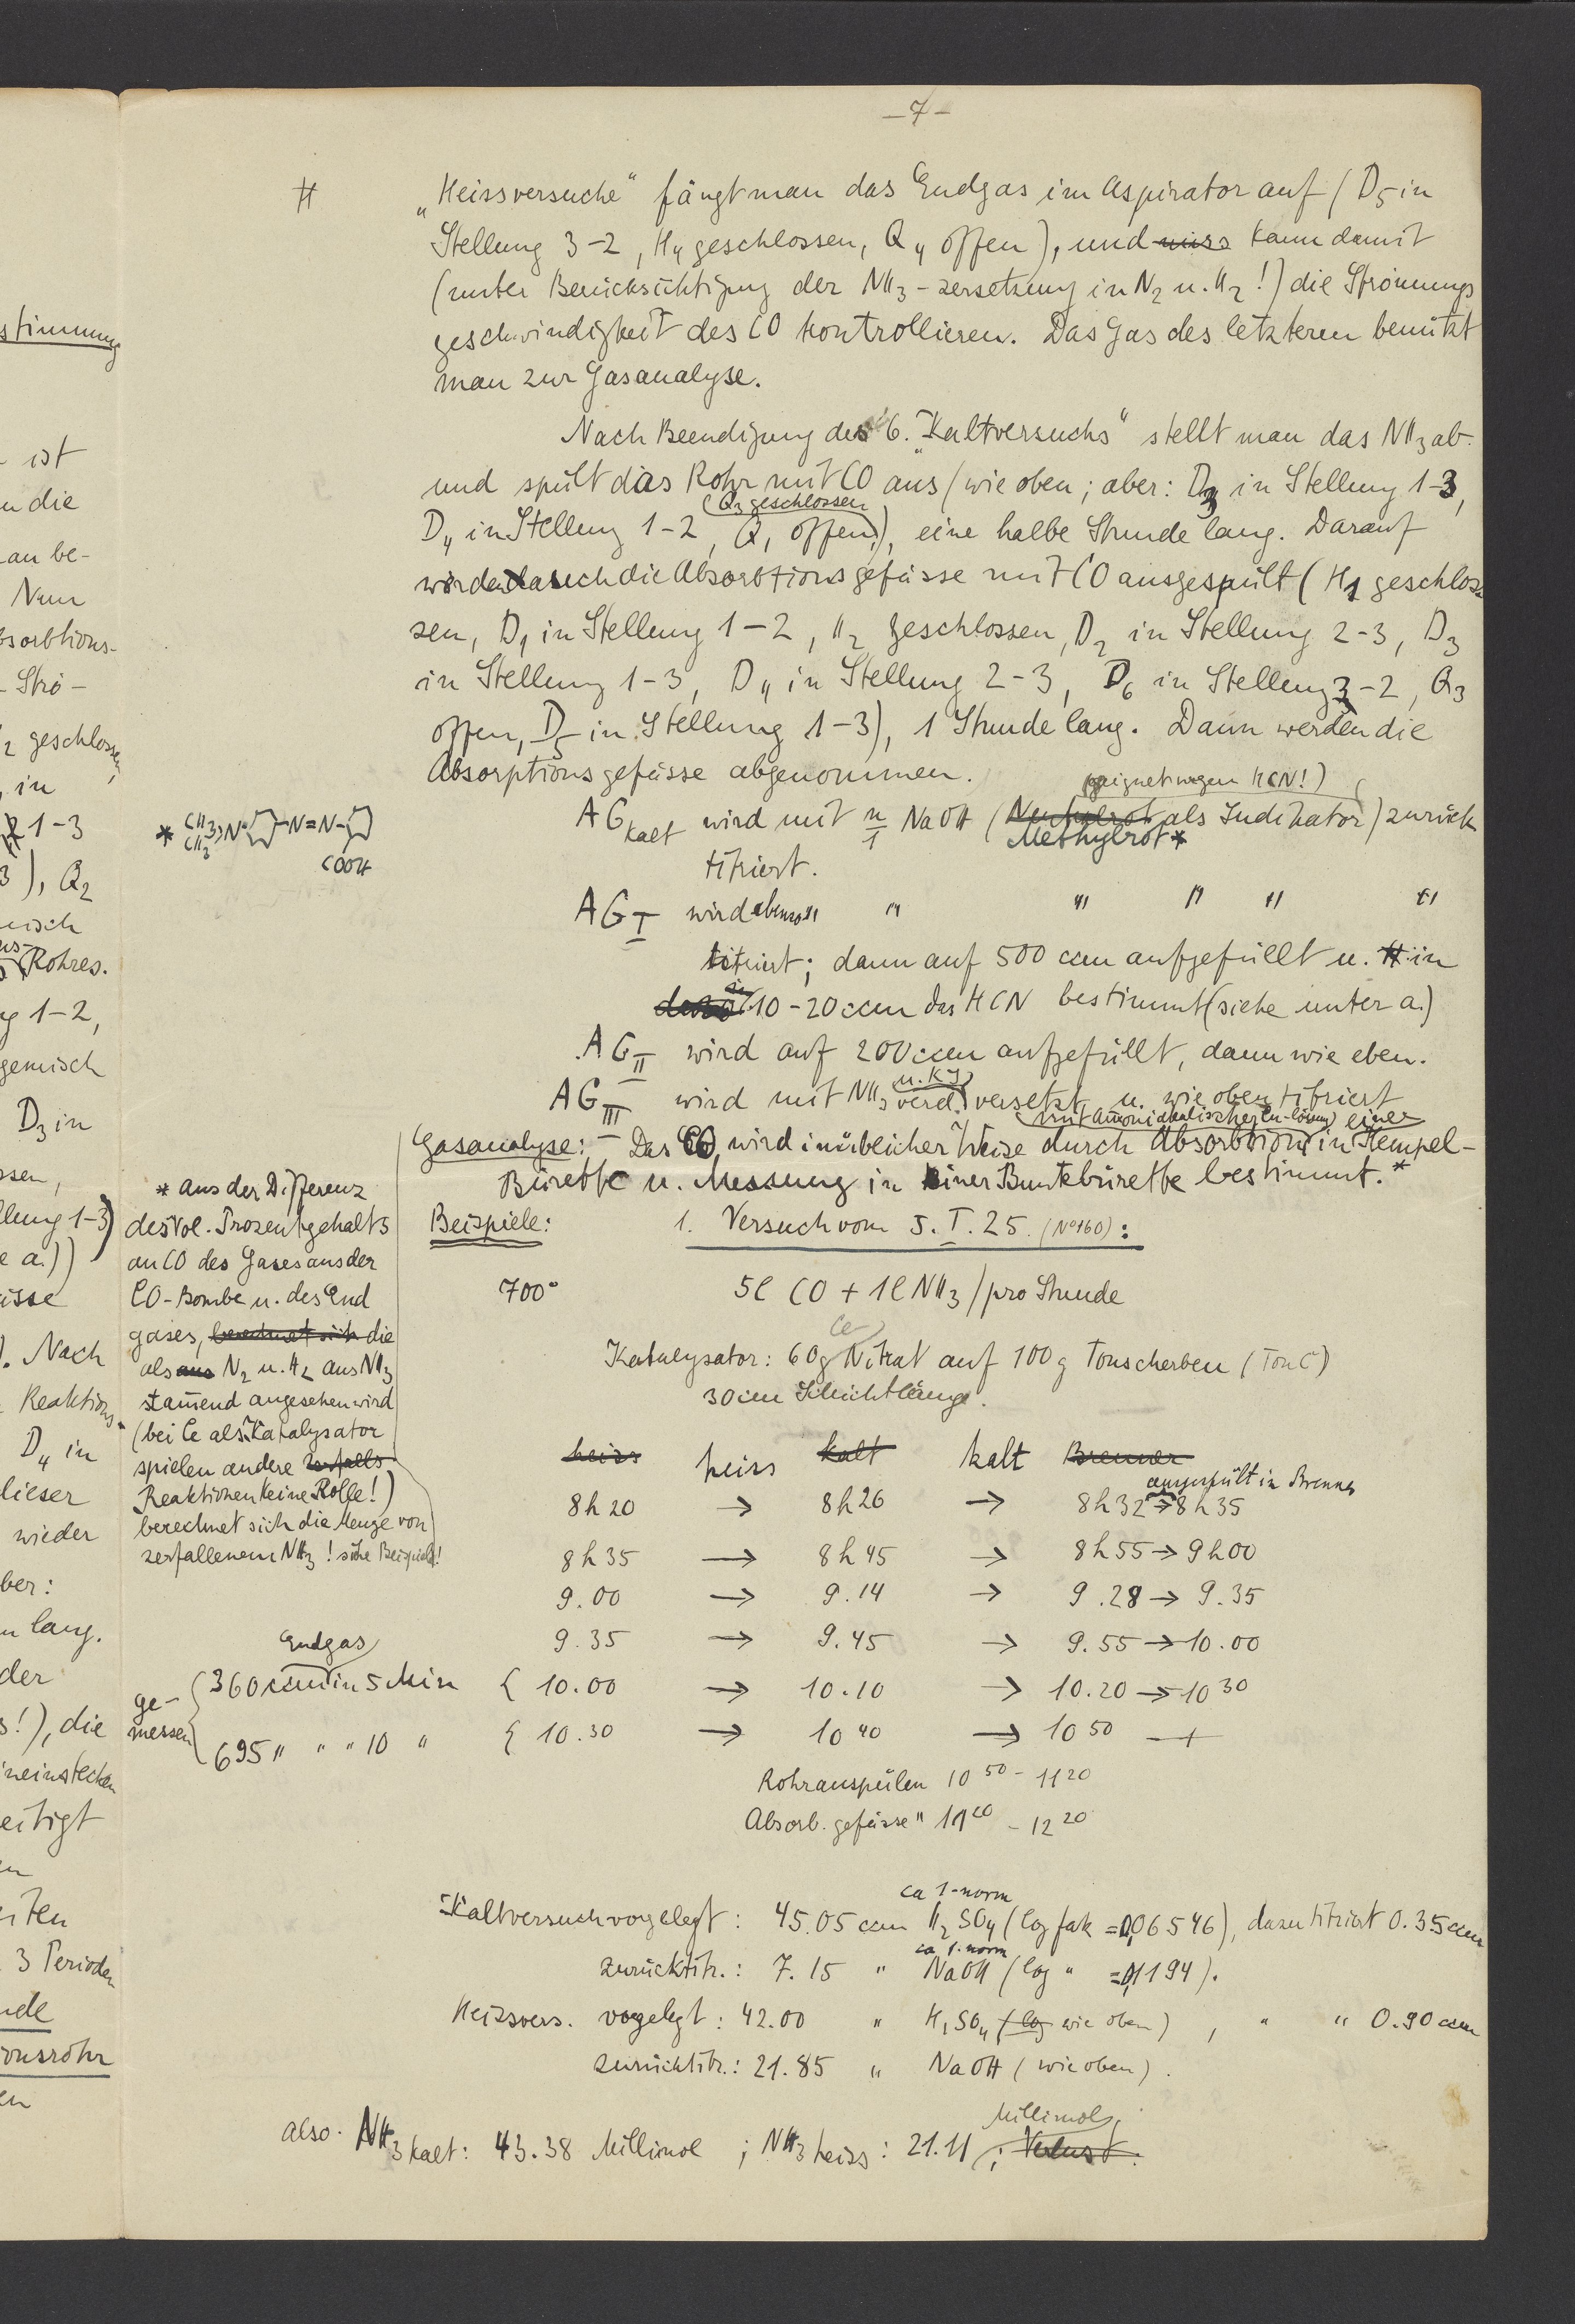 -7-
# „Heissversuche" fängt man das Endgas im Aspirator auf (D5 in
Stellung 3-2, H4 geschlossen, Q4 offen), und muss kann damit
(unter Berücksichtigung der NH3-zersetzung in N2 u. H2!) die Strömungs
geschwindigkeit des CO kontrollieren. Das Gas des letzteren benützt
man zur Gasanalyse.
Nach Beendigung des 6. „Kaltversuchs" stellt man das NH3 ab
und spült das Rohr mit CO aus (wie oben; aber: D3 in Stellung 1-3,
(Q3 geschlossen
D4 in Stellung 1-2, Q1 offen), eine halbe Stunde lang. Darauf
werden auch die Absorbtionsgefässe mit CO ausgespült (H1 geschlos
sen, D1 in Stellung 1-2, H2 geschlossen, D2 in Stellung 2-3, D3
in Stellung 1-3, D4 in Stellung 2-3, D6 in Stellung 3-2, Q3
offen, D5 in Stellung 1-3), 1 Stunde lang. Dann werden die
Absorptionsgefässe abgenommen.
geeignet wegen HCN!)
AG kalt wird mit n/1 NaOH (Neutralrot als Indikator) zurück
Methylrot*
titriert.
* CH3 CH3 >N- -N=N-
COOH
AG I wird ebenso " " " " " "
titriert; dann auf 500 ccm aufgefüllt u. in
10-20 ccm das HCN bestimmt (siehe unter a.)
AG II wird auf 200 ccm aufgefüllt, dann wie eben.
u. KJ
AG III wird mit NH3 verd. versetzt u. wie oben titriert
mit ammoniakalischer Cu-lösung einer
Gasanalyse: - Das CO wird in üblicher Weise durch Absorbtion in Hempel-
Bürette u. Messung in einer Buntebürette bestimmt.*
* aus der Differenz
des Vol. Prozentgehalts
an CO des Gases aus der
CO-Bombe u. des End
gases, berechnet sich die
als aus N2 u. H2 aus NH3
stam̄end angesehen wird
(bei Ce als Katalysator
spielen andere Zerfalls
Reaktionen keine Rolle!)
berechnet sich die Menge von
zerfallenem NH3! siehe Beispiele!
Beispiele: 1. Versuch vom 5.I.25. (No 160):
700° 5l CO + 1l NH3/pro Stunde
Ce
Katalysator: 60g Nitrat auf 100g Tonscherben (Ton C)
30 cm Schichtlänge.
heiss heiss kalt kalt Brenner
ausgespült in Brenner
8h20 → 8h26 → 8h32 → 8h35
8h35 → 8h45 → 8h55 → 9h00
9.00 → 9.14 → 9.28 → 9.35
9.35 → 9.45 → 9.55 → 10.00
Endgas
ge-
messen
360 ccm in 5 Min { 10.00 → 10.10 → 10.20 → 10 30
695 " " " 10 " { 10.30 → 10 40 → 10 50 —+
Rohrausspülen 10 50 - 11 20
Absorb. gefässe " 11 20 - 12 20
ca 1-norm
Kaltversuch vorgelegt: 45.05 ccm H2SO4 (log fak = 0,06546), dazu titriert 0.35 ccm
ca 1.norm
zurücktitr.: 7.15 " NaOH (log " = 0,1194).
Heissvers. vorgelegt: 42.00 " H2SO4 (log wie oben), " " 0.90 ccm
zurücktitr.: 21.85 " NaOH (wie oben).
Millimol,
also. NH3 kalt: 43.38 Millimol ; NH3 heiss: 21.11 ; Verlust.
stimmung
ist
die
an be-
Nun
bsorbtions-
Strö-
2 geschlossen,
in
1-3
), Q2
Rohres.
1-2,
gemisch
D3 in
llung 1-3)
e a.))
Nach
Reaktions-
D4 in
dieser
wieder
ber:
lang.
der
s!), die
ineinstecken
eitigt
3 Perioden
onsrohr